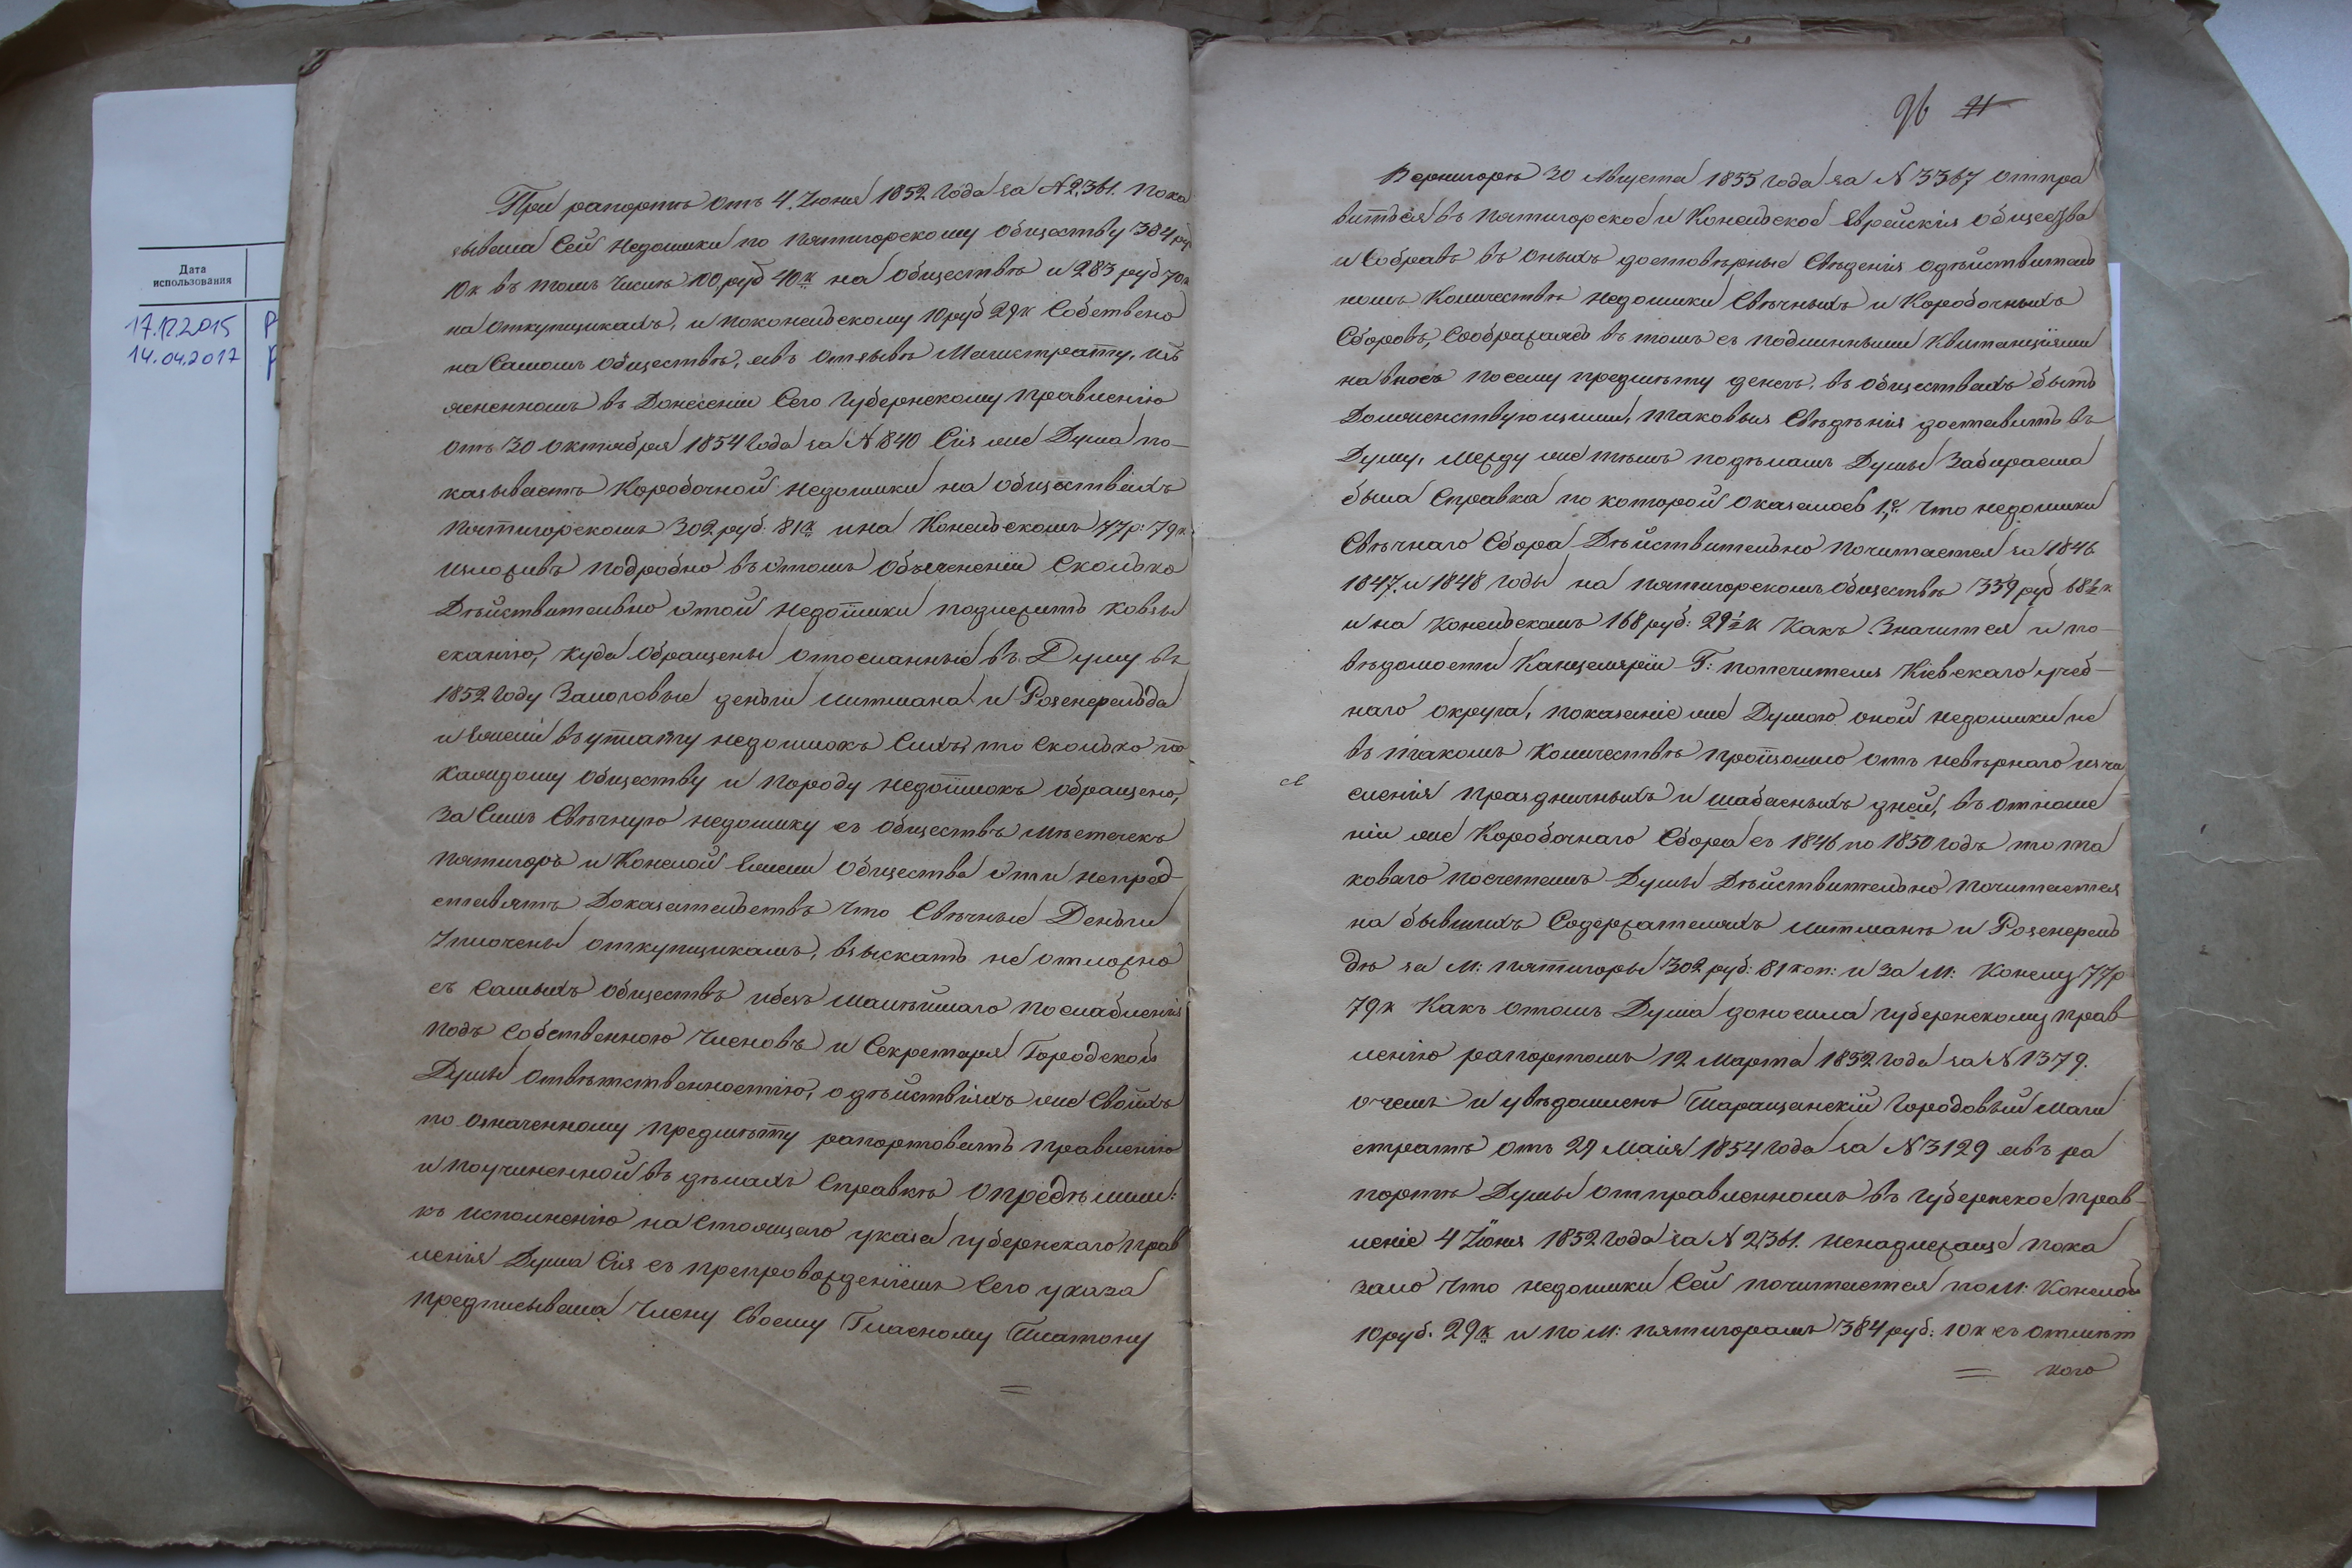 Дата
использования
17.12.2015
14.04.2017
При рапортѣ отъ 4. Іюня 1852 года за №2,361. пока
зывала Сей недоимки по пятигорскому обществу 384 руб
10 к въ томъ числѣ 100 руб 40 к на обществѣ и 283 руб 70 к
на откупщикахъ, и поконельскому 10 руб 29 к Собствено
на Самомъ обществѣ, авъ отзывѣ Магистрату, изъ
ясненномъ въ Донесеніи Сего губернскому правленію
отъ 30 октября 1854 года за № 840 Сія же Дума по-
казываетъ Коробочной недоимки на обществахъ
пятигорскомъ 302 руб. 81 к и на Конельскомъ 77 р: 79 к.
изложивъ подробно въ этомъ объясненіи Сколько
Дѣйствительно этой недоимки подлежитъ ко взы
сканію, куда обращены отосланные въ Думу въ
1852 году Залоговые деньги Литмана и Розенфельда
и если въ уплату недоимокъ Сихъ, то сколько по
каждому обществу и породу недоимокъ обращено,
За Симъ Свѣчную недоимку съ обществъ мѣстечекъ
пятигоръ и Конелой если общества эти непред
ставятъ Доказательствъ что Свѣчные Деньги
Уплочены откупщикамъ, взыскать не отложно
съ самыхъ обществъ ибезъ малѣйшаго послабленія
подъ Собственною членовъ и Секретаря Городской
Думы отвѣтственностію, одѣйствіяхъ же своихъ
по означенному предмѣту рапортовать правленію
и поучиненной въ дѣлахъ Справкѣ опредѣлили:
къ исполненію настоящаго указа губернскаго прав
ленія Дума Сія съ препровожденіемъ Сего указа
предписывала Члену Своему Гласному Платону
96 21
Вернигорѣ 30 Августа 1855 года за № 3367 отпра
виться въ пятигорское и Конельское Еврейскія общества
и Собравъ въ оныхъ достовѣрные Свѣденія одѣйствитель
номъ Количествѣ недоимки Свѣчныхъ и Коробочныхъ
Сборовъ, Соображаясь въ томъ съ подлинными Квитанціями
навзносъ посему предмѣту денегъ, въ обществахъ быть
Долженствующими, таковыя Свѣдѣнія доставить въ
Думу, между же тѣмъ подѣламъ Думы Забираема
была Справка по которой оказалось 1,е Что недоимки
Свѣчнаго Сбора Дѣйствительно почитается за 1846
1847. и 1848 годы на пятигорскомъ обществѣ 339 руб 68½ к
и на Конельскомъ 168 руб: 29½ к Какъ Значится и по-
вѣдомости Канцеляріи Г: попечителя Кіевскаго учеб-
наго округа, показаніе же Думою оной недоимки не
въ такомъ Количествѣ произошло отъ невѣрнаго изчи
сленія праздничныхъ и шабасныхъ дней, въ отноше
ніи же Коробочнаго Сбора съ 1846 по 1850 годъ то та
коваго посчетамъ Думы Дѣйствительно почитается
на бывшихъ Содержателяхъ Литманѣ и Розенфель
дѣ за М: пятигоры 302 руб: 81 коп: и за М: Конелу 77 р
79 к Какъ отомъ Дума доносила губернскому прав
ленію рапортомъ 12 Марта 1852 года за № 1379.
о чемъ и увѣдомленъ Таращанскій городовый Маги
стратъ отъ 29 Маія 1854 года за № 3129 авъ ра
портѣ Думы отправленномъ въ губернское прав-
леніе 4 Іюня 1852 года за № 2,361. ненадлежаще пока
зано что недоимки Сей почитается по М: Конелой
10 руб. 29 к и по М: пятигорамъ 384 руб: 10 к съ отмѣт
кою